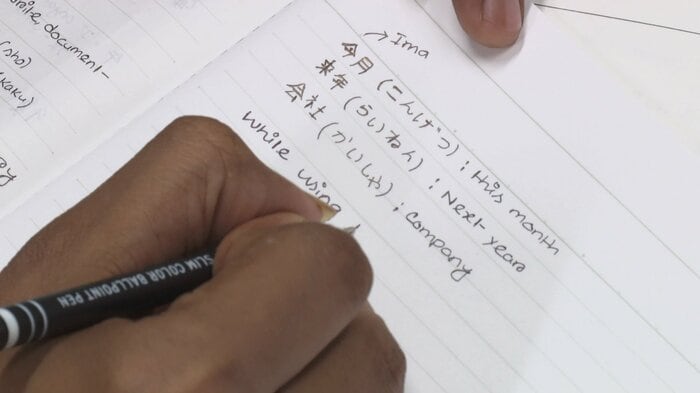 write, document-
(sho)
(kaku)
→ Ima
今月 (こんげつ) : this month
来年 (らいねん) : Next year
会社 (かいしゃ) : company
while using
SLIM COLOR BALLPOINT PEN